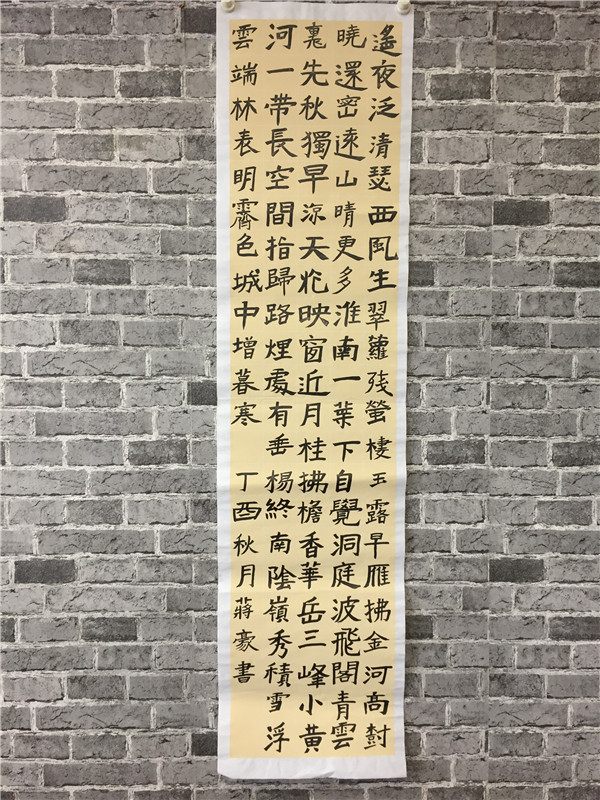 遙夜泛清瑟西風生翠蘿残螢棲玉露早雁拂金河高尌
曉還密遠山晴更多淮南一葉下自覺洞庭波飛閣青雲
裏先秋獨早涼天花映窗近月桂拂檐香華岳三峰小黃
河一帶長空間指歸路煙處有垂楊終南陰嶺秀積雪浮
雲端林表明霽色城中增暮寒 丁酉秋月蔣豪書